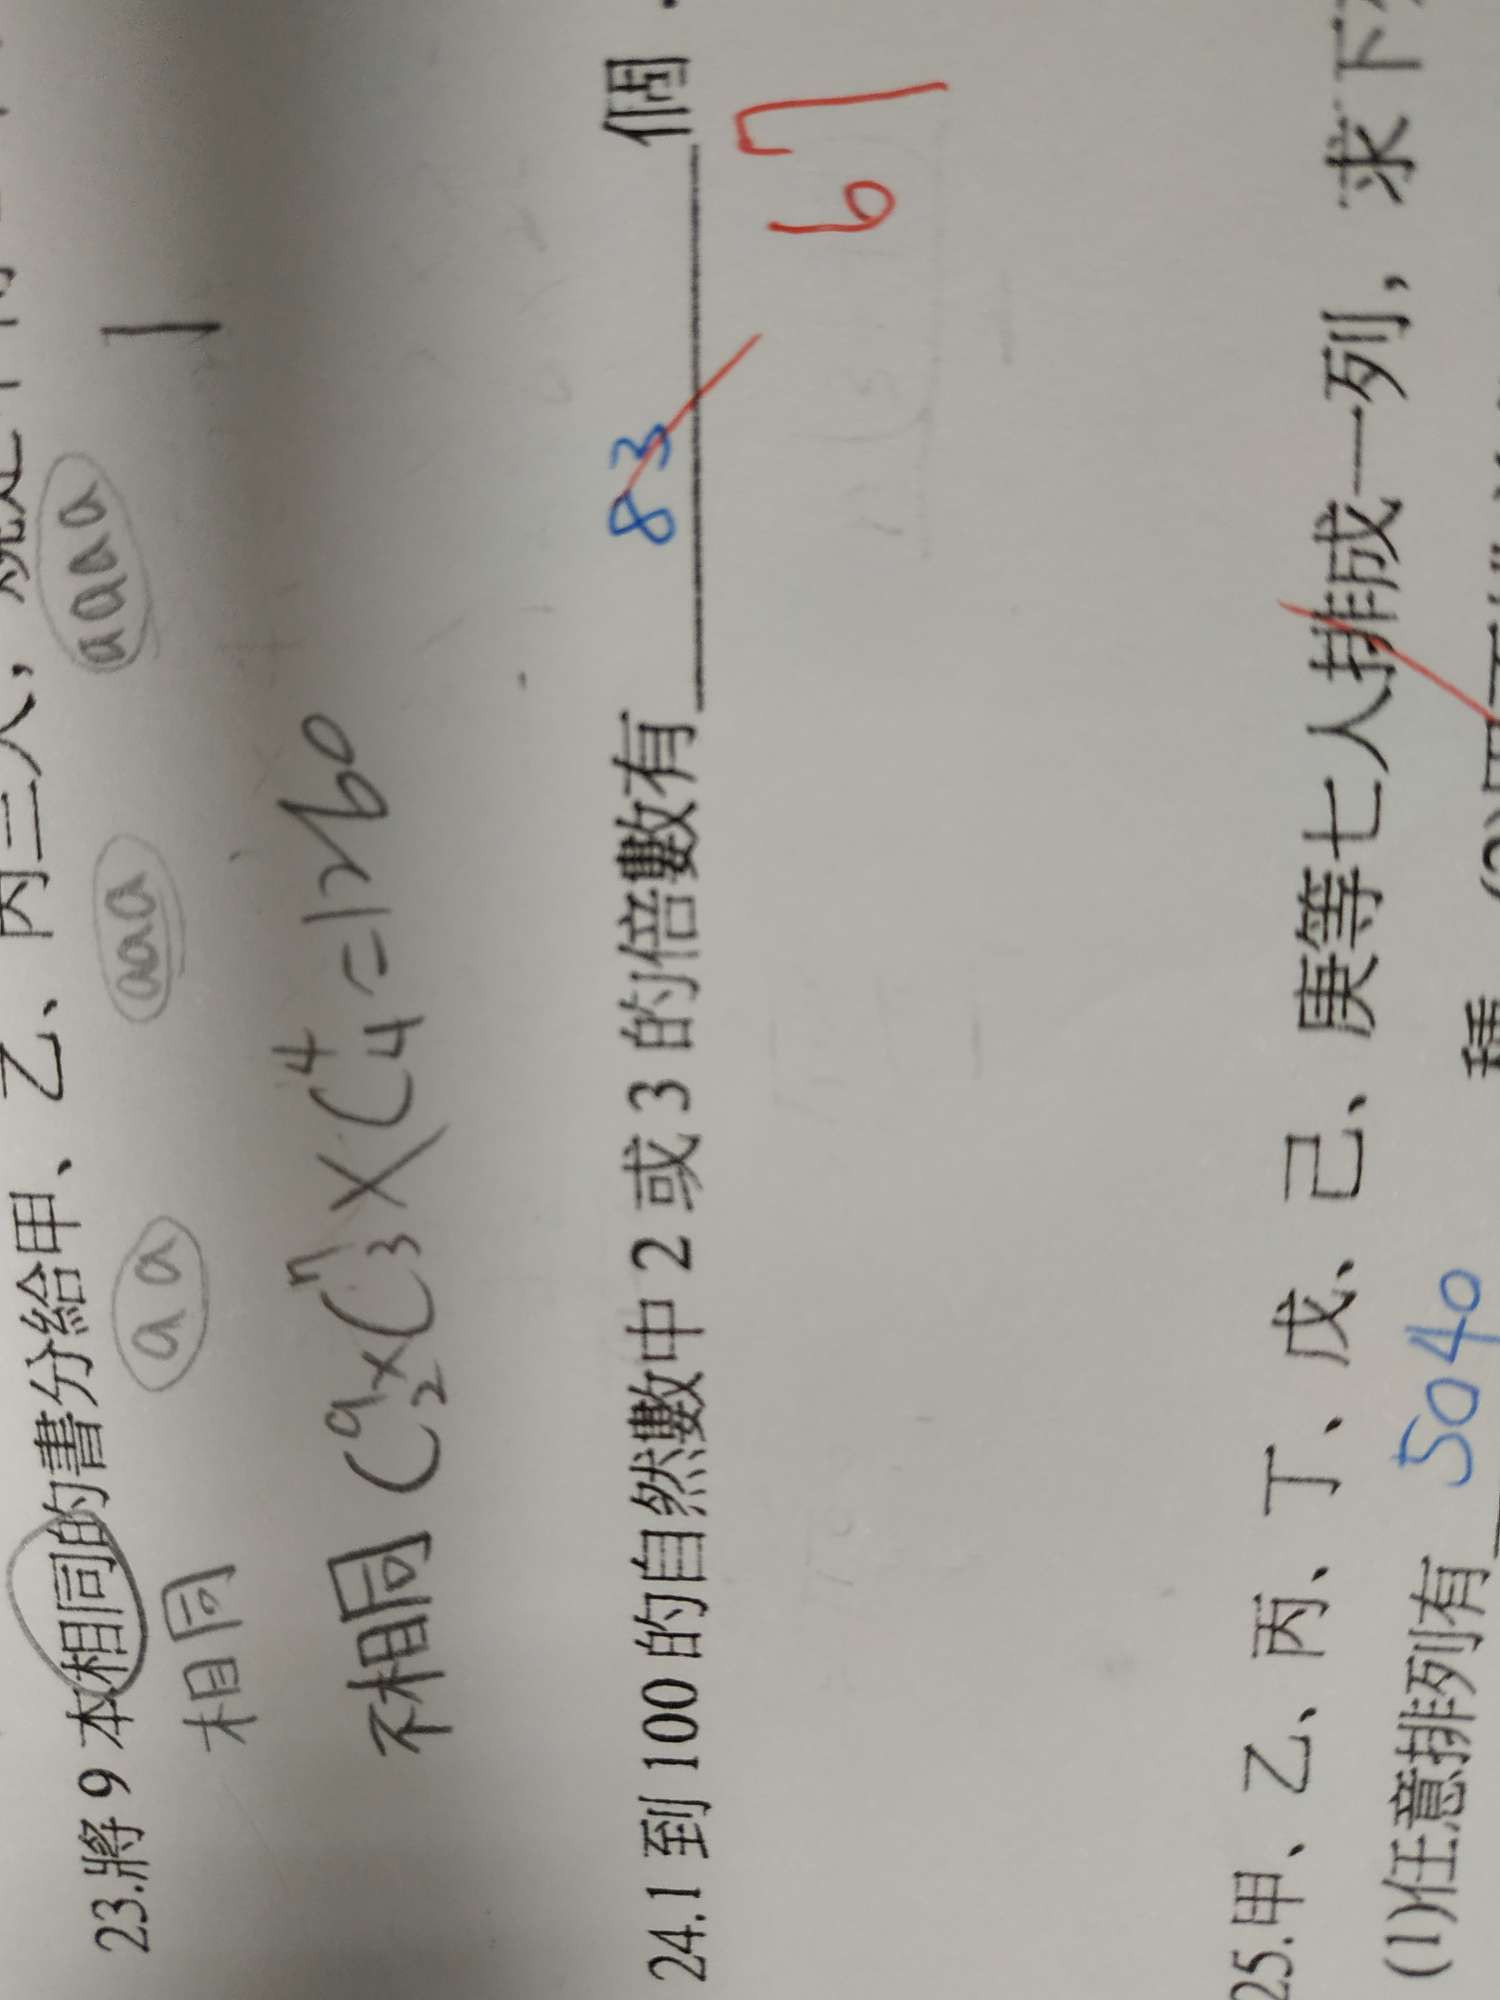 23.將 9 本相同的書分給甲、乙、丙三人，
相同 aa aaa aaaa 1
不相同 C⁹₂×C⁷₃×C⁴₄=1260
24.1 到 100 的自然數中 2 或 3 的倍數有 83 個．
67
25.甲、乙、丙、丁、戊、己、庚等七人排成一列，求下
(1)任意排列有 5040 種．(2)